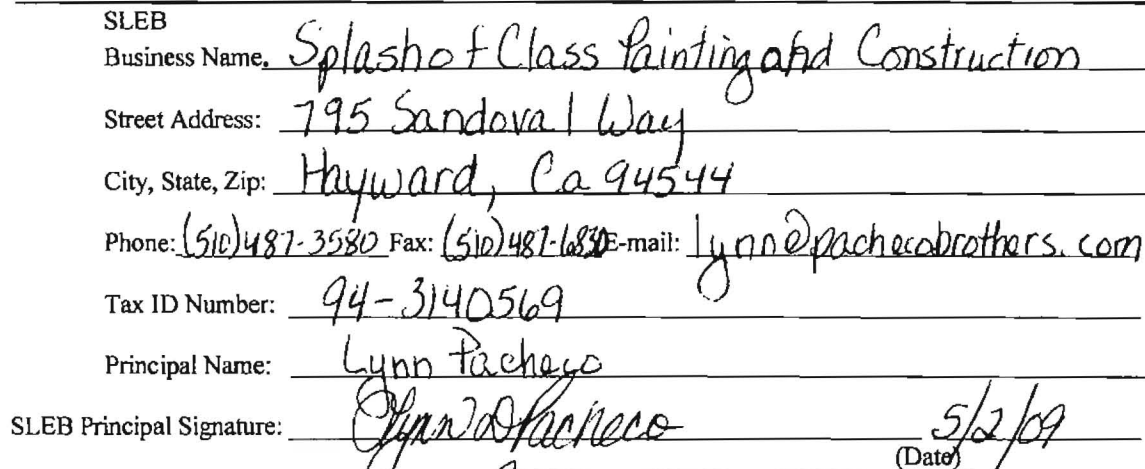 SLEB
Business Name. Splash of Class Painting and Construction
Street Address: 795 Sandoval Way
City, State, Zip: Hayward, Ca 94544
Phone: (510) 487-3580 Fax: (510) 487-6830 E-mail: lynn@pachecobrothers.com
Tax ID Number: 94-3140569
Principal Name: Lynn Pacheco
SLEB Principal Signature: Lynn D Pacheco 5/2/09
(Date)